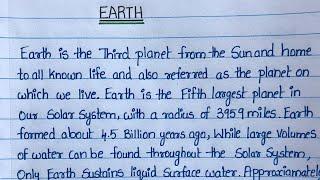 EARTH
Earth is the Third planet from the Sun and home
to all known life and also referred as the planet on
which we live. Earth is the Fifth largest planet in
our Solar System, with a radius of 3959 miles. Earth
formed about 4.5 Billion years ago, While large volumes
of water can be found throughout the Solar System,
Only Earth Sustains liquid Surface water. Approxiamately